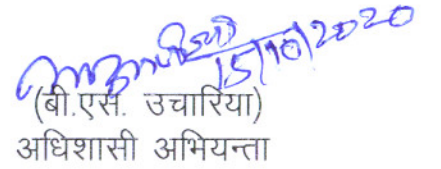 15/10/2020
(बी.एस. उचारिया)
अधिशासी अभियन्ता